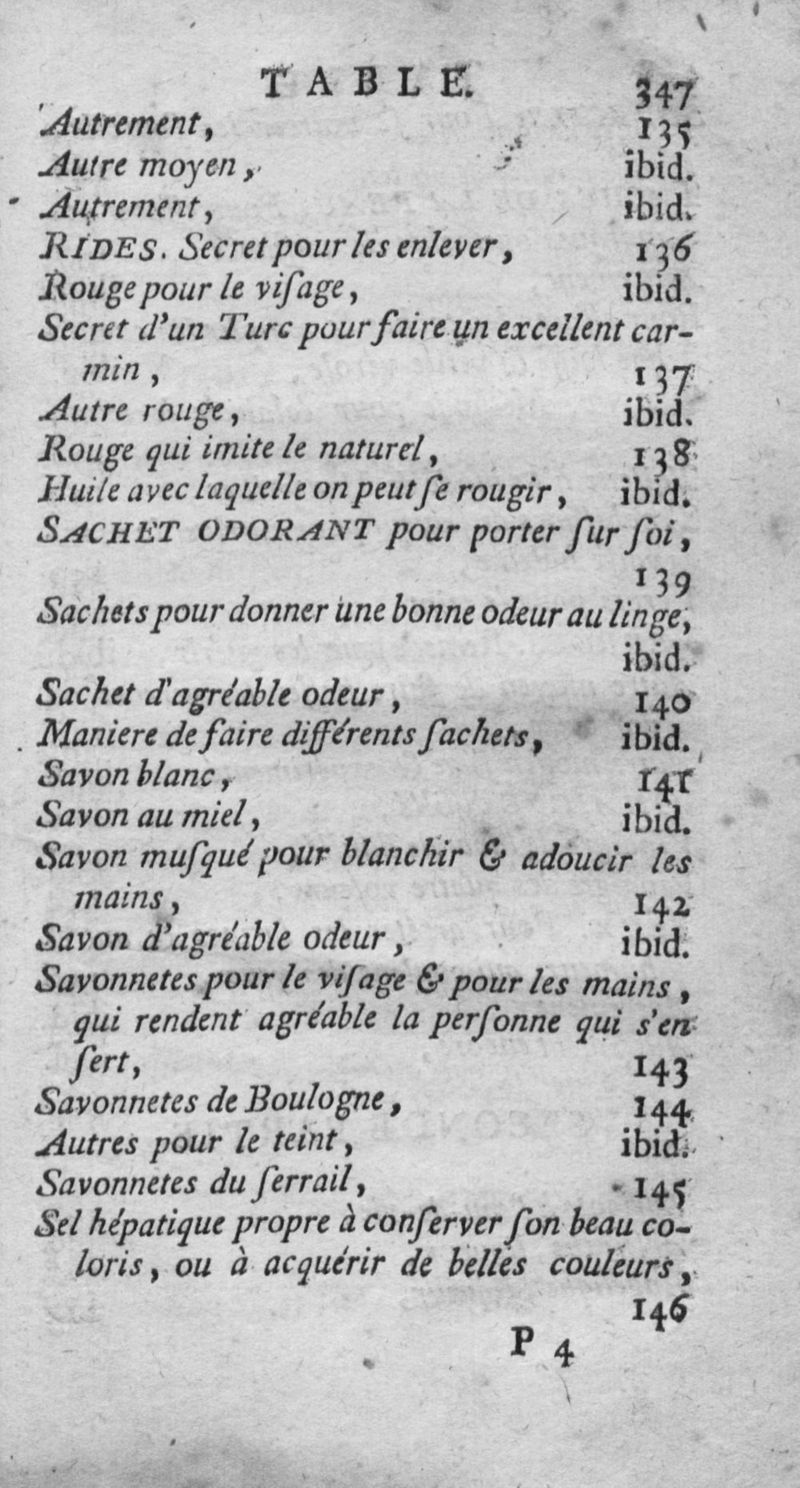 TABLE. 347
Autrement, 135
Autre moyen, ibid.
Autrement, ibid.
RIDES. Secret pour les enlever, 136
Rouge pour le viſage, ibid.
Secret d'un Turc pour faire un excellent car-
min, 137
Autre rouge, ibid.
Rouge qui imite le naturel, 138
Huile avec laquelle on peut ſe rougir, ibid.
SACHET ODORANT pour porter ſur ſoi,
139
Sachets pour donner une bonne odeur au linge,
ibid.
Sachet d'agréable odeur, 140
Maniere de faire différents ſachets, ibid.
Savon blanc, 141
Savon au miel, ibid.
Savon muſqué pour blanchir & adoucir les
mains, 142
Savon d'agréable odeur, ibid.
Savonnetes pour le viſage & pour les mains,
qui rendent agréable la perſonne qui s'en
ſert, 143
Savonnetes de Boulogne, 144
Autres pour le teint, ibid.
Savonnetes du ſerrail, 145
Sel hépatique propre à conſerver ſon beau co-
loris, ou à acquérir de belles couleurs,
146
P 4